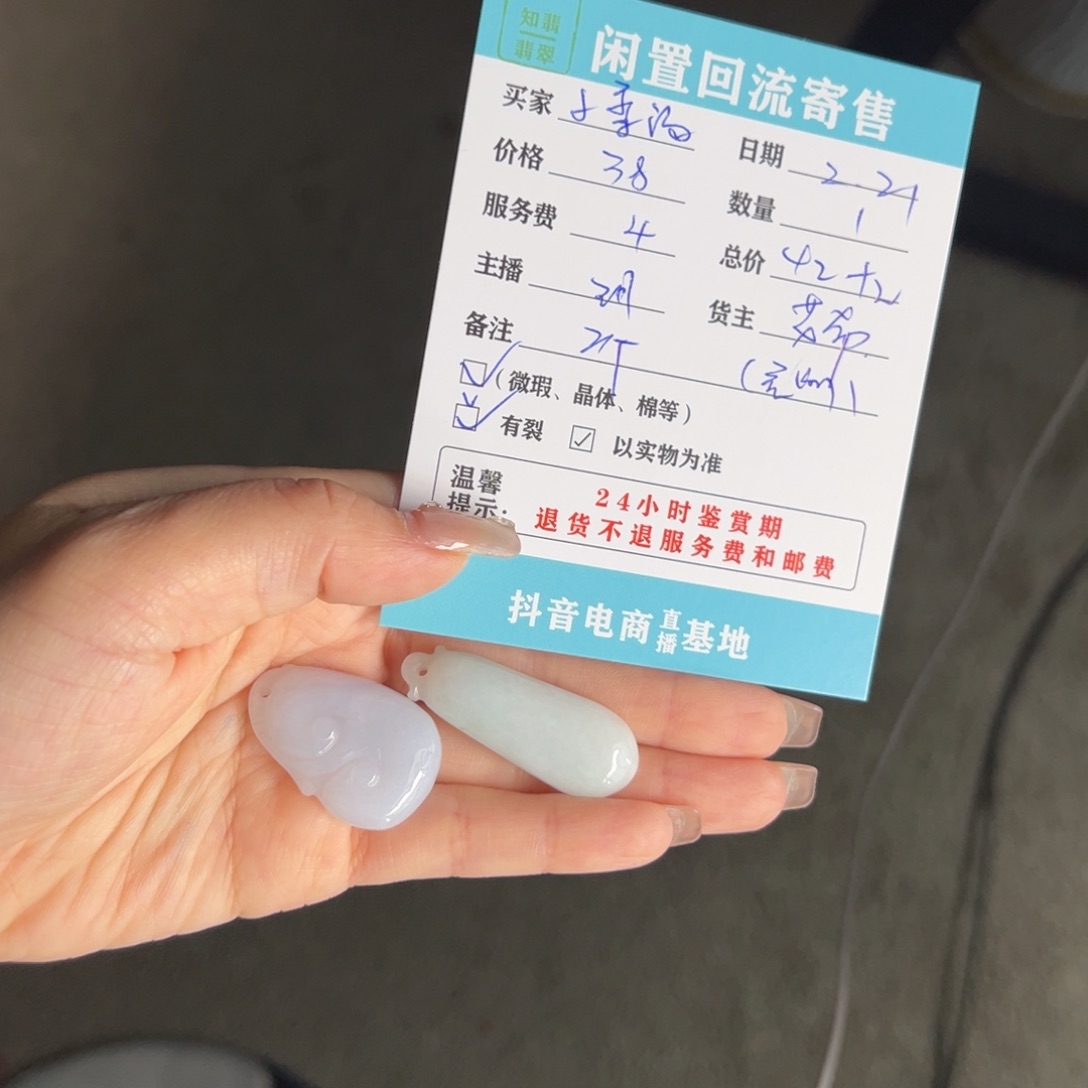 知翡
翡翠
闲置回流寄售
买家
日期 2.21
价格 38
数量 1
服务费 4
总价 42+2
主播
货主
备注 2件
(微瑕、晶体、棉等)
有裂 以实物为准
温馨
提示:
24小时鉴赏期
退货不退服务费和邮费
抖音电商直播基地